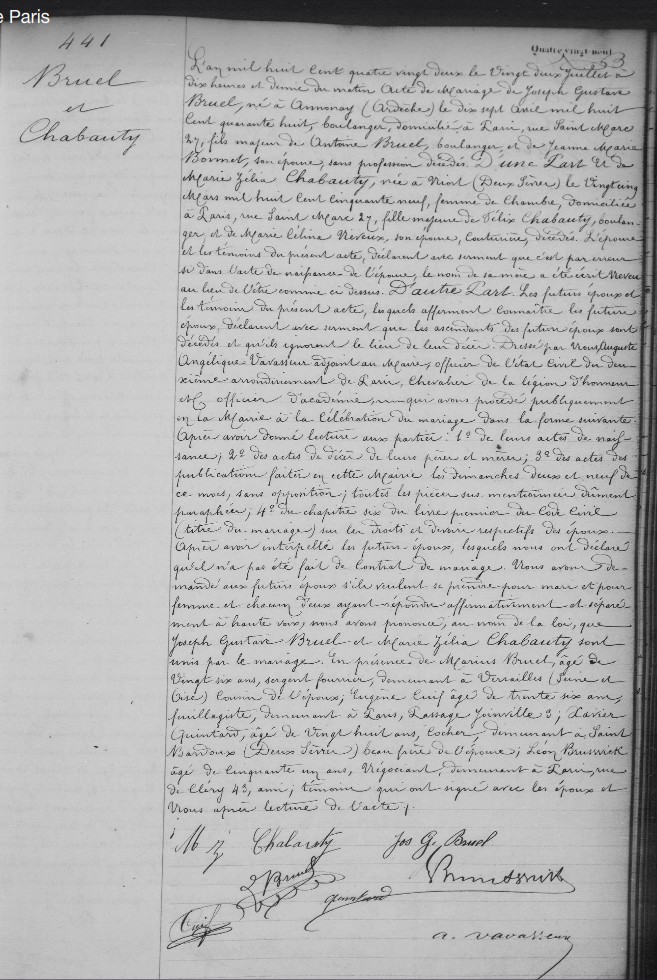 e Paris
441
Quatre vingt neuf
53
Bruel
et
Chabauty
L'an mil huit cent quatre vingt deux le vingt deux Juillet à
dix heures et demie du matin Acte de Mariage de Joseph Gustave
Bruel, né à Annonay (Ardèche) le dix sept avril mil huit
cent quarante huit, boulanger, domicilié à Paris, rue Saint Marc
27, fils majeur de Antoine Bruel, boulanger, et de Jeanne Marie
Bonnet, son épouse, sans profession décédés. D'une Part Et de
Marie Zélia Chabauty, née à Niort (Deux Sèvres) le vingt cinq
Mars mil huit cent cinquante neuf, femme de Chambre, domiciliée
à Paris, rue Saint Marc 27, fille majeure de Félix Chabauty, boulan-
ger, et de Marie Célina son épouse, Couturière, décédés. L'épouse
et les témoins du présent acte, déclarent avec serment que c'est par erreur
si dans l'acte de naissance de l'épouse, le nom de sa mère a été écrit
au lieu de l'être comme ci dessus. D'autre Part. Les futurs époux et
les témoins du présent acte, lesquels affirment connaître les futurs
époux, déclarent avec serment que les ascendants des futurs époux sont
décédés et qu'ils ignorent le lieu de leur décès. Dressé par Nous, Auguste
Angélique Vavasseur adjoint au Maire, officier de l'état civil du deu-
xième arrondissement de Paris, Chevalier de la légion d'honneur
officier d'académie, qui avons procédé publiquement
en la Mairie à la célébration du mariage dans la forme suivante.
Après avoir donné lecture aux parties: 1º de leurs actes de nais-
sance; 2º des actes de décès de leurs pères et mères; 3º des actes des
publications faites en cette Mairie les dimanches deux et neuf de
ce mois, sans opposition; toutes les pièces sus mentionnées dûment
paraphées; 4º du chapitre six du livre premier du Code Civil
(titre du mariage) sur les droits et devoirs respectifs des époux.
Après avoir interpellé les futurs époux, lesquels nous ont déclaré
qu'il n'a pas été fait de contrat de mariage. Nous avons de-
mandé aux futurs époux s'ils veulent se prendre pour mari et pour
femme et chacun d'eux ayant répondu affirmativement et séparé-
ment à haute voix, nous avons prononcé, au nom de la loi, que
Joseph Gustave Bruel et Marie Zélia Chabauty sont
unis par le mariage. En présence de Marius Bruel, âgé de
vingt six ans, sergent fourrier, demeurant à Versailles (Seine et
Oise) Cousin de l'époux; Eugène Cuif âgé de trente six ans,
feuillagiste, demeurant à Paris, Passage Joinville 3; Xavier
Quintard, âgé de vingt huit ans, Cocher, demeurant à Saint
(Deux Sèvres) beau frère de l'épouse; Léon Brunswick
âgé de cinquante un ans, Négociant, demeurant à Paris, rue
de Cléry 43, ami; témoins qui ont signé avec les époux et
Nous après lecture de l'acte.
M Z Chabauty Jos G. Bruel
Bruel Brunswick
Quintard
Cuif
a. vavasseur